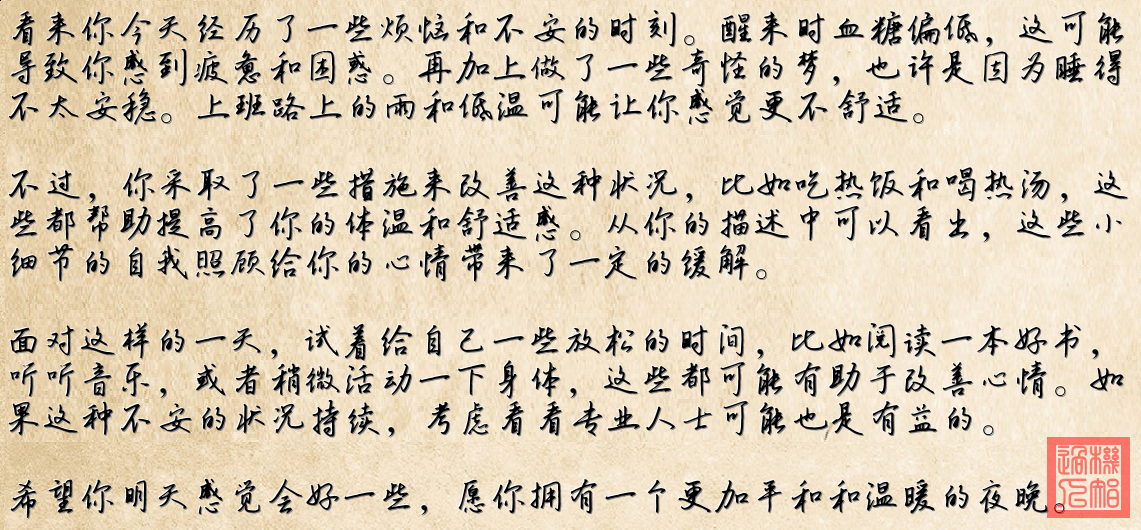 看来你今天经历了一些烦恼和不安的时刻。醒来时血糖偏低，这可能
导致你感到疲惫和困惑。再加上做了一些奇怪的梦，也许是因为睡得
不太安稳。上班路上的雨和低温可能让你感觉更不舒适。
不过，你采取了一些措施来改善这种状况，比如吃热饭和喝热汤，这
些都帮助提高了你的体温和舒适感。从你的描述中可以看出，这些小
细节的自我照顾给你的心情带来了一定的缓解。
面对这样的一天，试着给自己一些放松的时间，比如阅读一本好书，
听听音乐，或者稍微活动一下身体，这些都可能有助于改善心情。如
果这种不安的状况持续，考虑看看专业人士可能也是有益的。
希望你明天感觉会好一些，愿你拥有一个更加平和和温暖的夜晚。